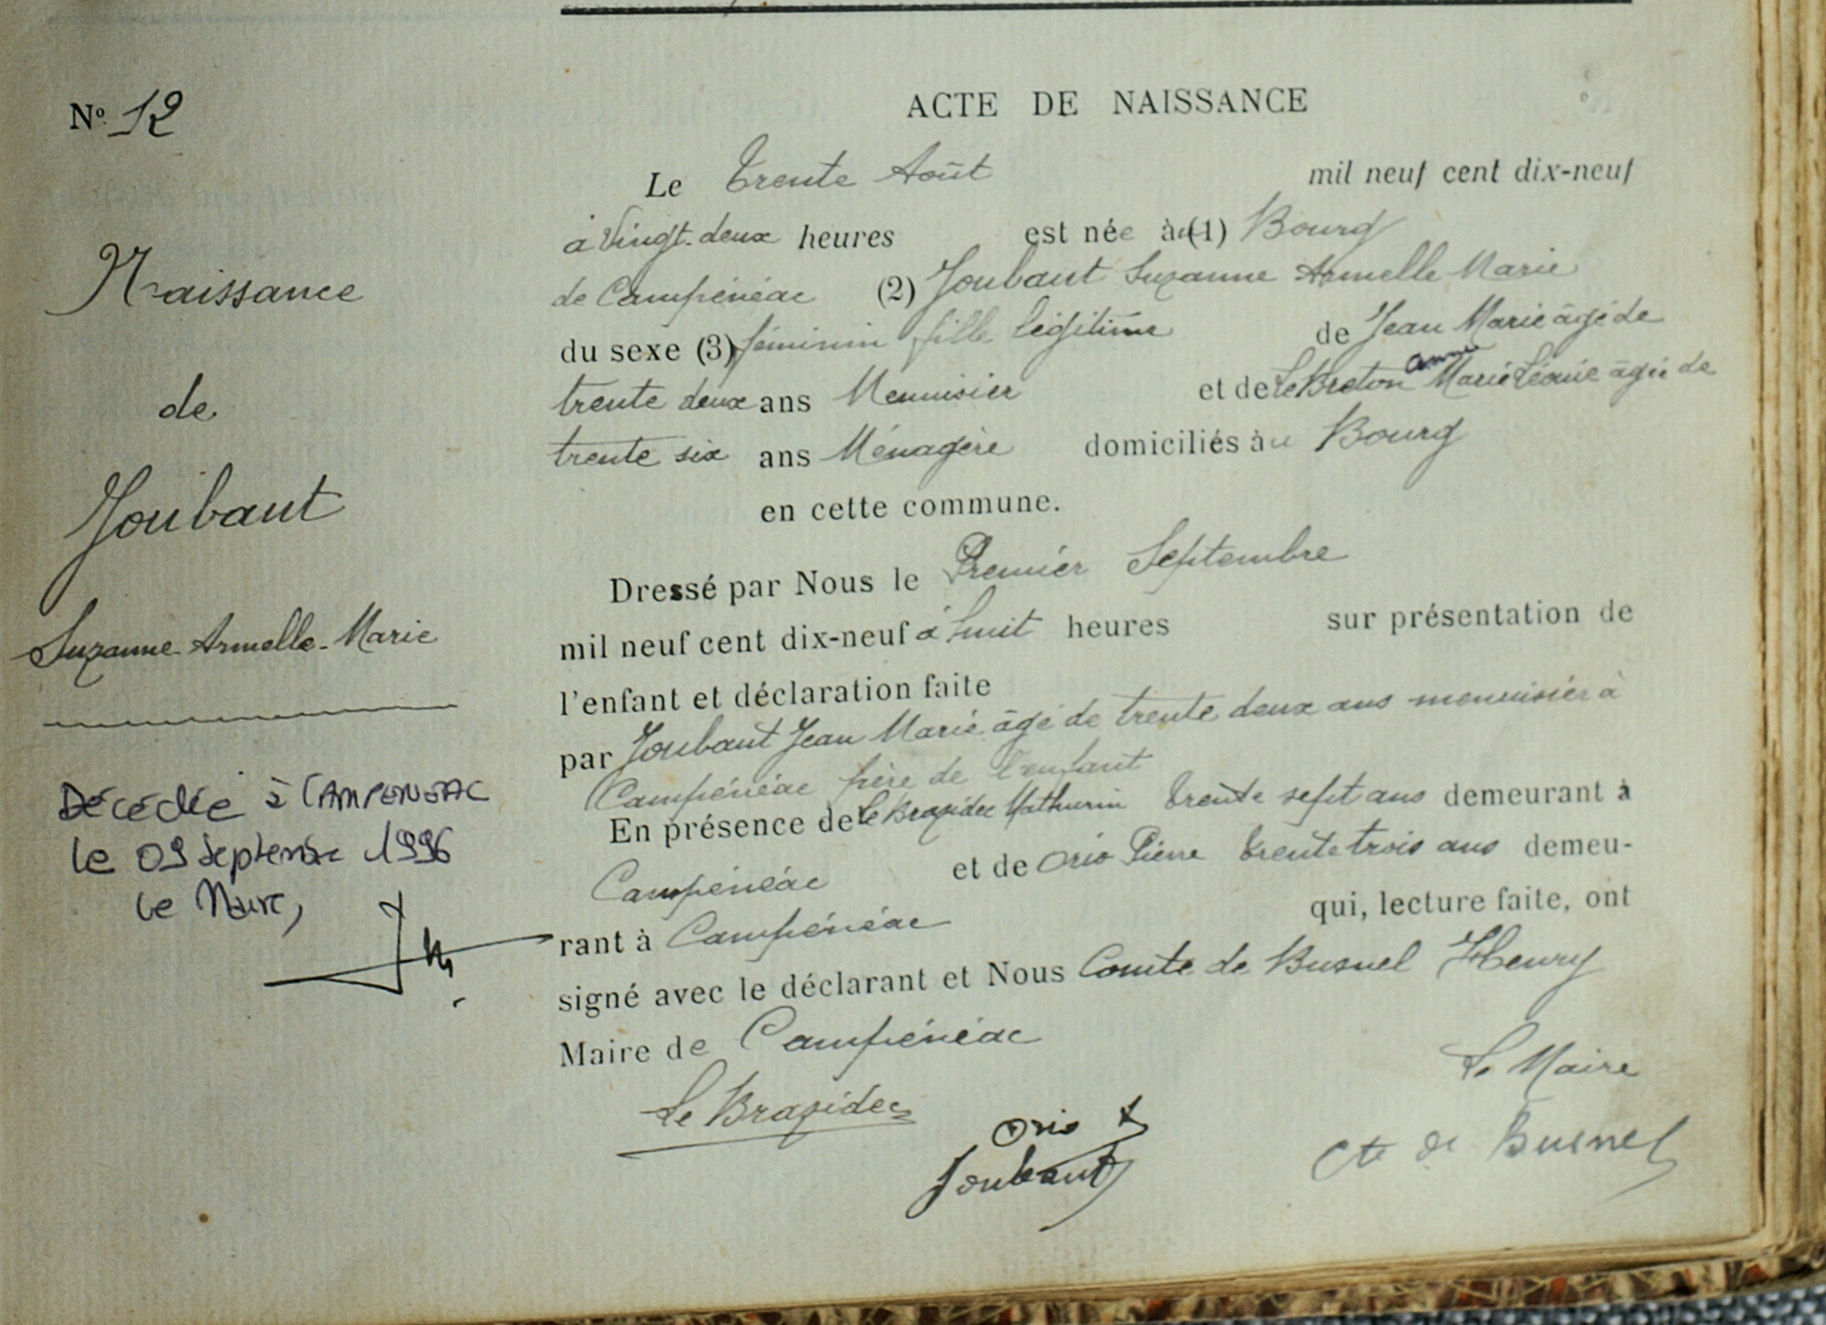 No 12
Naissance
de
Joubaut
Suzanne Armelle-Marie
Décédée à CAMPENEAC
le 09 septembre 1996
Le Maire,
ACTE DE NAISSANCE
Le Trente Août mil neuf cent dix-neuf
à Vingt-deux heures est née au (1) Bourg
de Campénéac (2) Joubaut Suzanne Armelle Marie
du sexe (3) féminin fille légitime de Jean Marie âgé de
trente deux ans Menuisier et de Le Breton Anne Marie Léonie âgée de
trente six ans Ménagère domiciliés au Bourg
en cette commune.
Dressé par Nous le Premier Septembre
mil neuf cent dix-neuf à huit heures sur présentation de
l'enfant et déclaration faite
par Joubaut Jean Marie âgé de trente deux ans menuisier à
Campénéac père de l'enfant
En présence de Le Brazidec Mathurin trente sept ans demeurant à
Campénéac et de Orio Pierre trente trois ans demeu-
rant à Campénéac qui, lecture faite, ont
signé avec le déclarant et Nous Comte de Busnel Henry
Maire de Campénéac
Le Maire
Le Brazidec
Orio
Joubaut
Cte de Busnel